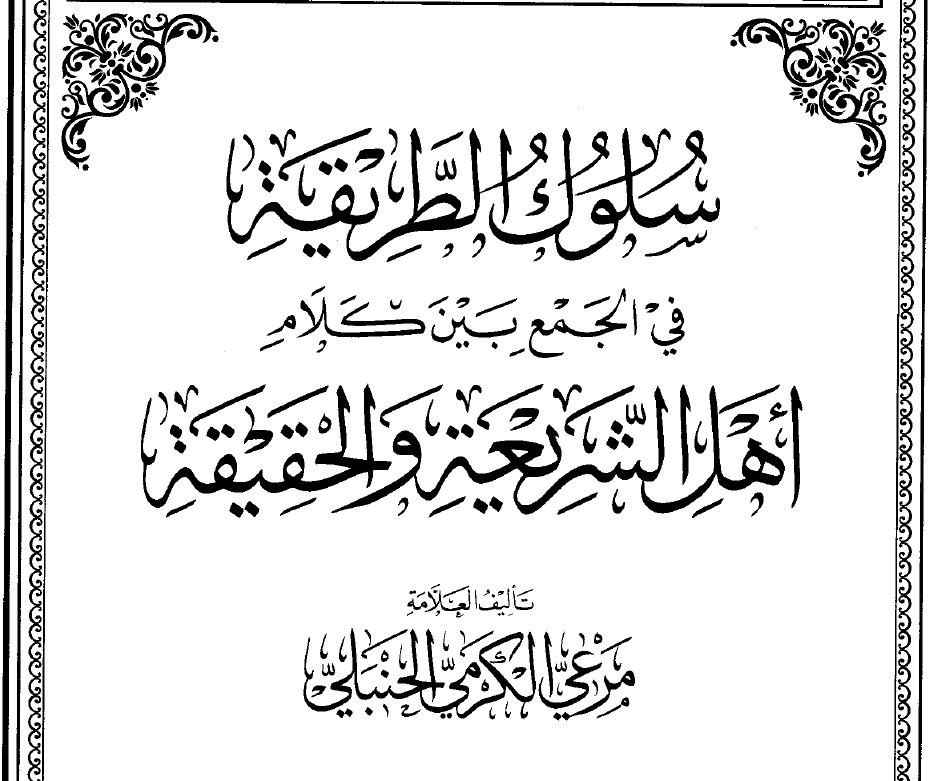 سُلُوكُ الطَّرِيقَةِ
فِي الجَمْعِ بَيْنَ كَلَامِ
أَهْلِ الشَّرِيعَةِ وَالحَقِيقَةِ
تَأليفُ العَلَّامَةِ
مَرْعِيّ الكَرْمِيّ الحَنْبَلِيّ